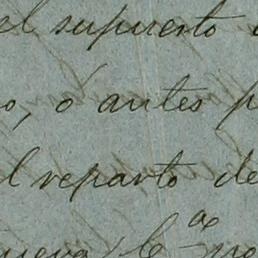 el supuesto
o, ó antes p
l reparto de